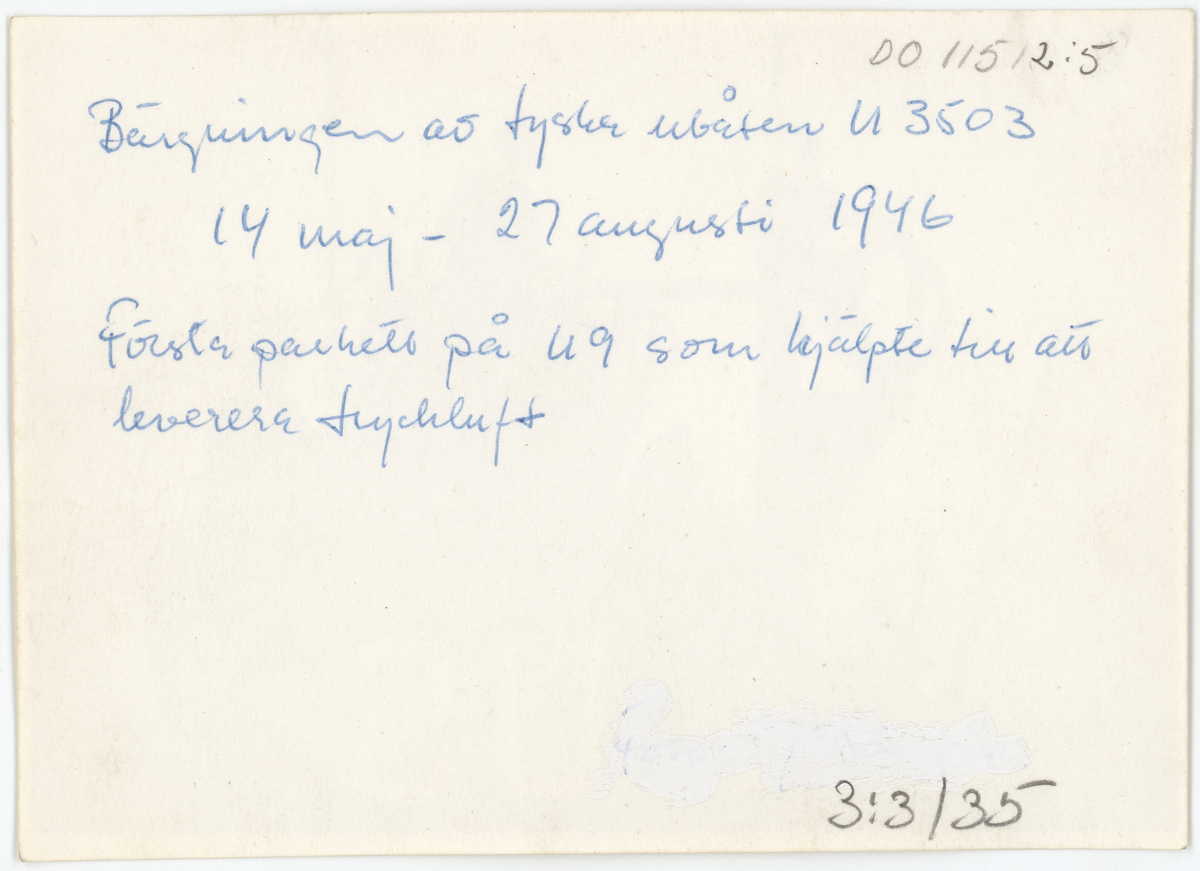 DO 11512:5
Bärgningen av tyska ubåten U 3503
14 maj - 27 augusti 1946
Första parkett på U9 som hjälpte till att
leverera tryckluft
3:3/35